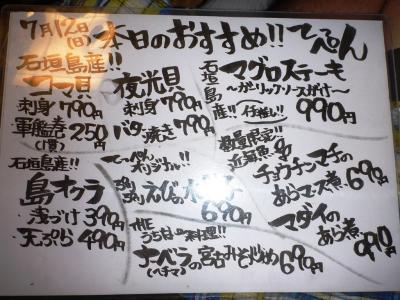 7月12日(日)本日のおすすめ!!てっぺん
石垣島産!!
コブシメ
刺身790円
軍艦巻250円
(1貫)
夜光貝
刺身790円
バター焼き790円
石垣島産!!
マグロステーキ
〜ガーリックソースがけ〜
イチ推し!! 990円
石垣島産!!
島オクラ
浅づけ390円
天ぷら490円
てっぺんオリジナル!!
えびの水餃子
690円
数量限定!!
近海魚
チョウチンマチの
あらマース煮690円
マダイの
あら煮
990円
THE
うちなー料理!!
ナーベラの宮古みそ炒め690円
(ヘチマ)